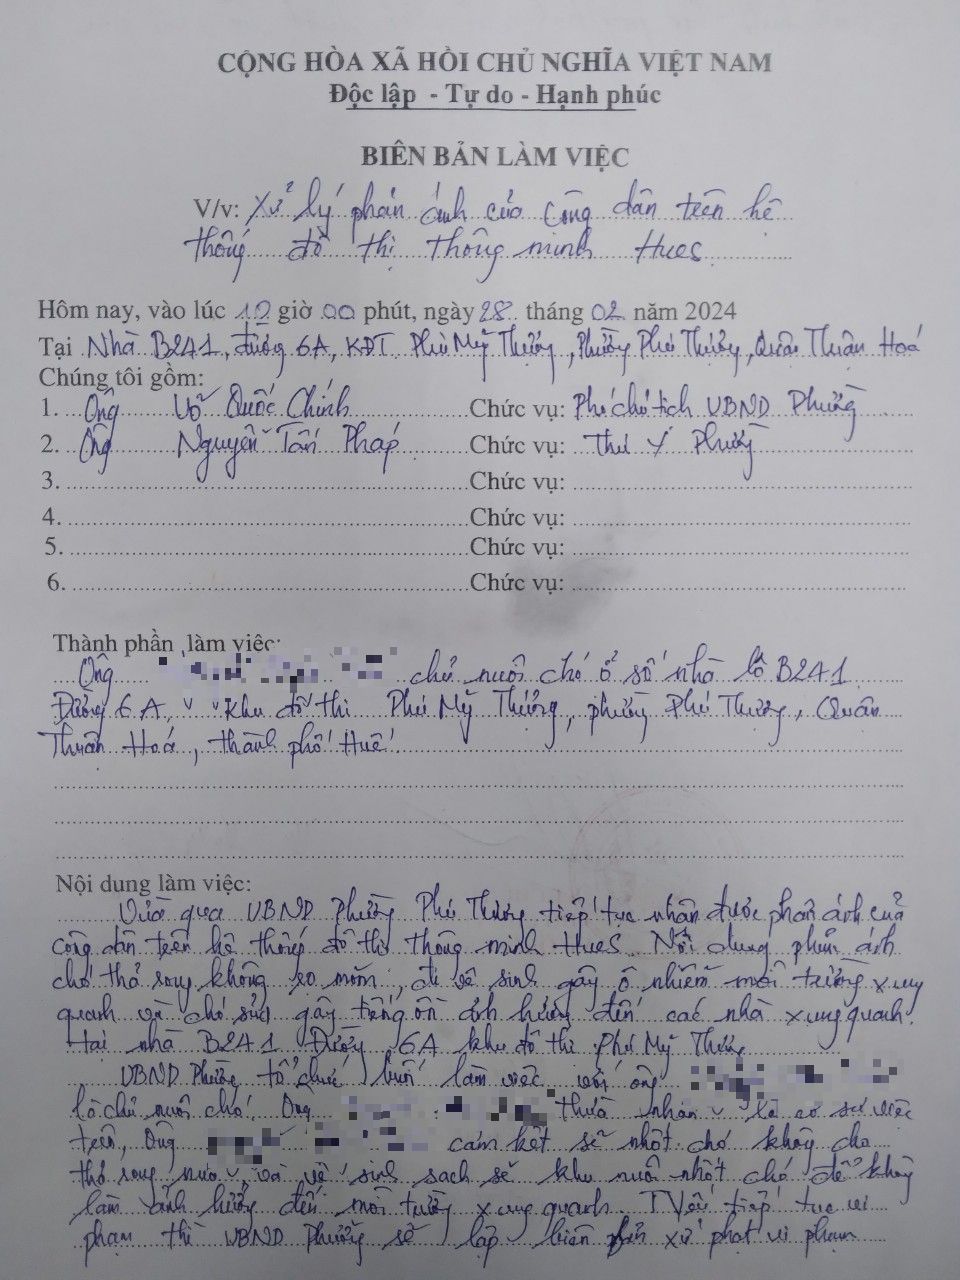 CỘNG HÒA XÃ HỒI CHỦ NGHĨA VIỆT NAM
Độc lập - Tự do - Hạnh phúc
BIÊN BẢN LÀM VIỆC
V/v: Xử lý phản ánh của công dân trên hệ
thống đô thị thông minh HueS
Hôm nay, vào lúc 10 giờ 00 phút, ngày 28 tháng 02 năm 2024
Tại Nhà B241, đường 6A, KĐT Phú Mỹ Thượng, Phường Phú Thượng, Quận Thuận Hoá
Chúng tôi gồm:
1. Ông Võ Quốc Chính Chức vụ: Phó chủ tịch UBND Phường
2. Ông Nguyễn Tấn Pháp Chức vụ: Thú Y Phường
3. Chức vụ:
4. Chức vụ:
5. Chức vụ:
6. Chức vụ:
Thành phần làm việc:
Ông chủ nuôi chó ở số nhà lô B241
Đường 6A, Khu đô thị Phú Mỹ Thượng, phường Phú Thượng, Quận
Thuận Hoá, thành phố Huế.
Nội dung làm việc:
Vừa qua UBND Phường Phú Thượng tiếp tục nhận được phản ánh của
công dân trên hệ thống đô thị thông minh HueS. Nội dung phản ánh
chó thả rong không rọ mõm, đi vệ sinh gây ô nhiễm môi trường xung
quanh và chó sủa gây tiếng ồn ảnh hưởng đến các nhà xung quanh.
tại nhà B241 Đường 6A khu đô thị Phú Mỹ Thượng
UBND Phường tổ chức buổi làm việc với ông
là chủ nuôi chó. Ông thừa nhận là có sự việc
trên, Ông cam kết sẽ nhốt chó không cho
thả rong nữa và vệ sinh sạch sẽ khu nuôi nhốt chó để không
làm ảnh hưởng đến môi trường xung quanh. Nếu tiếp tục vi
phạm thì UBND Phường sẽ lập biên bản xử phạt vi phạm